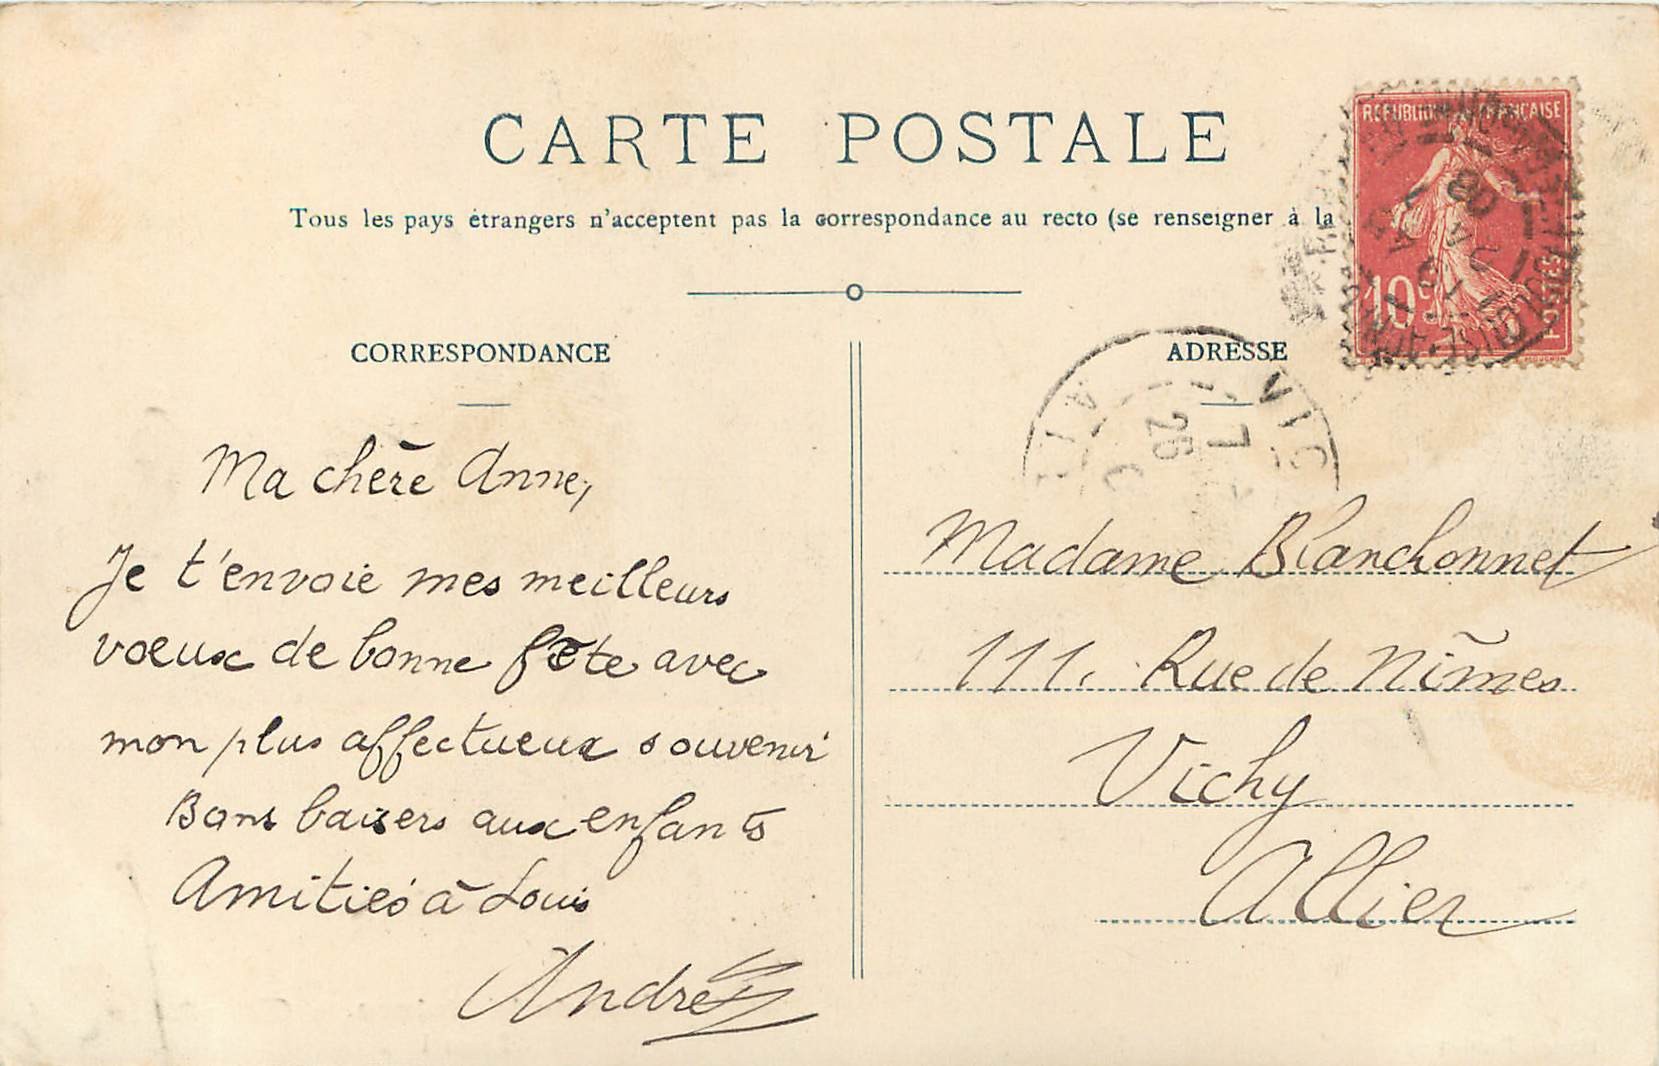 CARTE POSTALE
Tous les pays étrangers n'acceptent pas la correspondance au recto (se renseigner à la
REPUBLIQUE FRANÇAISE
10c
POSTES
CORRESPONDANCE
Ma chère Anne,
Je t'envoie mes meilleurs
voeux de bonne fête avec
mon plus affectueux souvenir
Bons baisers aux enfants
Amitiés à Louis
André
ADRESSE
VIC
7
26
Madame Blanchonnet
111. Rue de Nîmes
Vichy
Allier